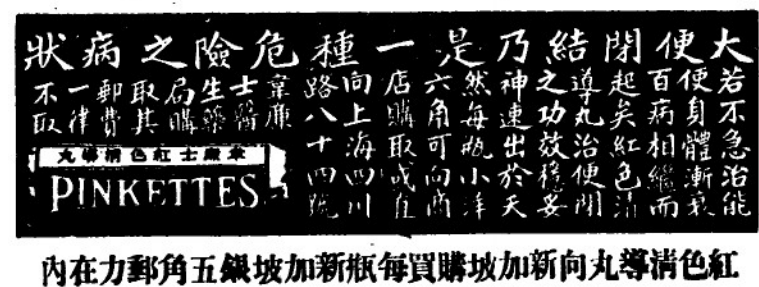 大便閉結乃是一種危險之病狀
若不急治能
便身體漸衰
百病相繼而
起矣紅色清
導丸治便閉
之功效穩妥
神速出於天
然每瓶小洋
六角可向商
店購取或直
向上海四川
路八十四號
韋廉
士醫
生藥
局購
取其
郵費
一律
不取
韋廉士紅色清導丸
PINKETTES
紅色清導丸向新加坡購買每瓶新加坡銀五角郵力在內